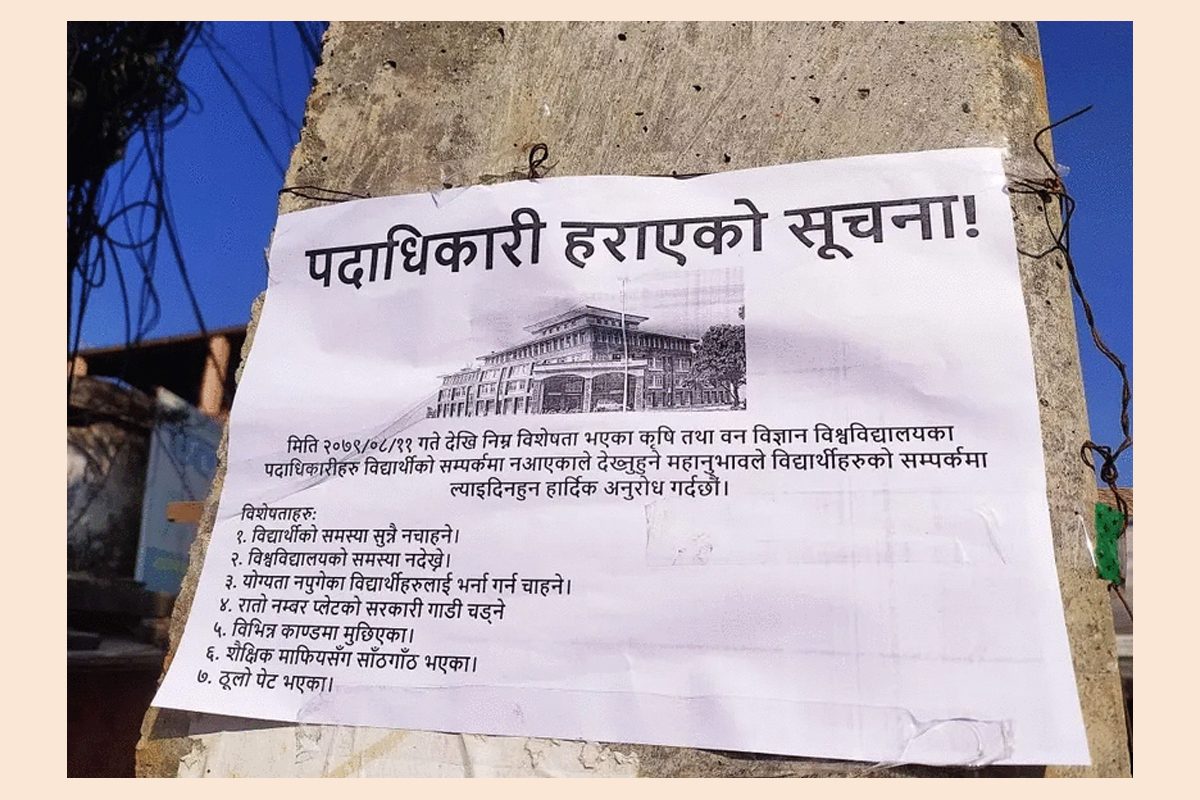 पदाधिकारी हराएको सूचना!
मिति २०७९/०८/११ गते देखि निम्न विशेषता भएका कृषि तथा वन विज्ञान विश्वविद्यालयका
पदाधिकारीहरु विद्यार्थीको सम्पर्कमा नआएकाले देख्नुहुने महानुभावले विद्यार्थीहरुको सम्पर्कमा
ल्याइदिनहुन हार्दिक अनुरोध गर्दछौं।
विशेषताहरु:
१. विद्यार्थीको समस्या सुन्नै नचाहने।
२. विश्वविद्यालयको समस्या नदेख्ने।
३. योग्यता नपुगेका विद्यार्थीहरुलाई भर्ना गर्न चाहने।
४. रातो नम्बर प्लेटको सरकारी गाडी चड्ने
५. विभिन्न काण्डमा मुछिएका।
६. शैक्षिक माफियसँग साँठगाँठ भएका।
७. ठूलो पेट भएका।